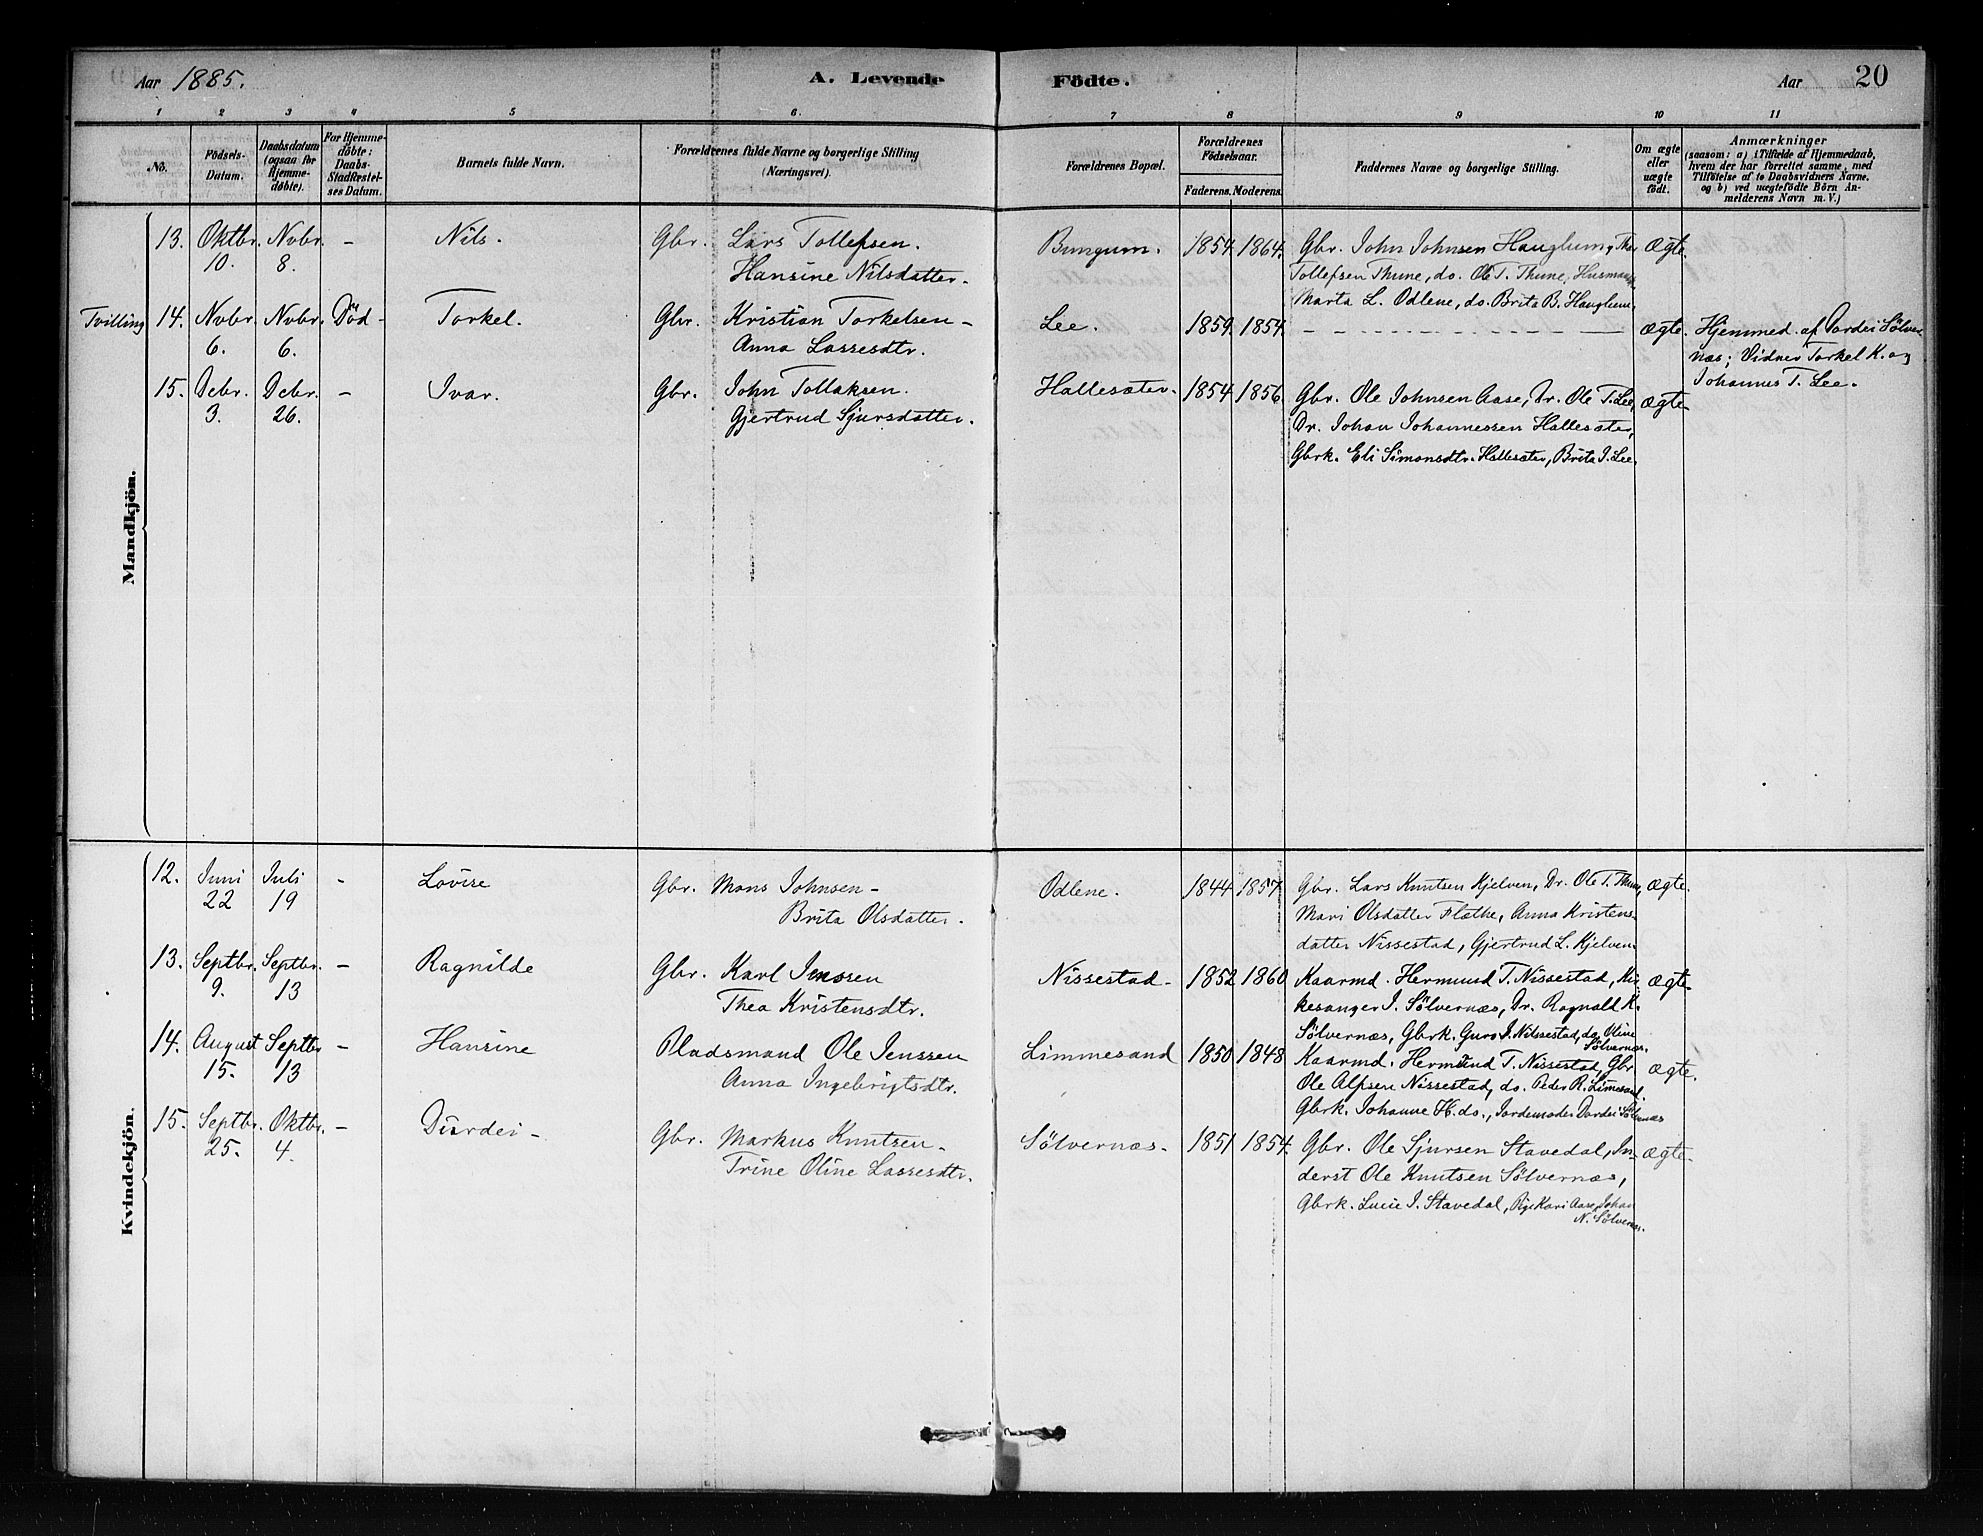 Aar 1885. A. Levende Födte. Aar 20
1 2 3 4 5 6. 7 8 9 10 11
No. Födsels-Datum. Daabsdatum (ogsaa for Hjemmedöbte). For Hjemmedöbte: Daabs-Stadfæstelses Datum. Barnets fulde Navn. Forældrenes fulde Navne og borgerlige Stilling (Næringsvei). Forældrenes Bopæl. Forældrenes Födselsaar. Faderens. Moderens. Faddernes Navne og borgerlige Stilling. Om ægte eller uægte födt. Anmærkninger (saasom: a) i Tilfælde af Hjemmedaab, hvem der har forrettet samme, med Tilföielse af to Daabsvidners Navne, og b) ved uægtefödte Börn Anmelderens Navn m. V.)
Mandkjön.
13. Oktbr. Nvbr. - Nils. Gbr. Lars Tollefsen. Bungum. 1854. 1864. Gbr. John Johnsen Hauglum, Thor Ægte.
10. 8. Hansine Nilsdatter. Tollefsen Thune, do. Ole T. Thune, Husmand
Marta L. Odlene, do. Brita B. Hauglum.
Tvilling 14. Nvbr. Nvbr. Död- Torkel. Gbr. Kristian Torkelsen - Lee. 1859. 1854. - - - - - Ægte. Hjemmed. af Dordei Sölver-
6. 6. Anna Lassesdtr. næs; Vidner Torkel K. og
Johannes T. Lee.
15. Debr. Debr. - Ivar. Gbr. John Tollaksen. Hallesæter. 1854. 1856. Gbr. Ole Johnsen Aase, Dr. Ole T. Lee, Ægte.
3. 26. Gjertrud Sjursdatter. Dr. Johan Johannessen Hallesæter,
Gbrk. Eli Simonsdtr. Hallesæter, Brita I. Lee.
Kvindekjön.
12. Juni Juli - Lovise Gbr. Mons Johnsen - Odlene. 1844 1857. Gbr. Lars Knutsen Kjelven, Dr. Ole T. Thune, Ægte.
22 19 Brita Olsdatter. Mari Olsdatter Flathe, Anna Kristens-
datter Nissestad, Gjertrud L. Kjelven.
13. Septbr. Septbr. - Ragnilde Gbr. Karl Jenssen Nissestad - 1852 1860 Kaarmd. Hermund T. Nissestad, Kir- Ægte.
9. 13 Thea Kristensdtr. kesanger I. Sölvernæs, Dr. Ragnald K.
Sölvernæs, Gbrk. Guro I. Nissestad, do. Oline Sölvernæs.
14. August Septbr - Hansine Pladsmand Ole Jenssen Limmesand 1850 1848 Kaarmd. Hermund T. Nissestad, Gbr Ægte.
15. 13 Anna Ingebrigtsdtr. Ole Alfsen Nissestad, do. Peder R. Limesand.
Gbrk. Johanne H. do., Jordemoder Dordei Sölvernæs
15. Septbr. Oktbr. - Durdei - Gbr. Markus Knutsen - Sölvernæs. 1851 1854. Gbr. Ole Sjursen Stavedal, In- Ægte.
25. 4. Trine Oline Lassesdtr. derst Ole Knutsen Sölvernæs,
Gbrk. Lucie I. Stavedal, Pige Kari Aase, Johan
N. Sölvernæs.